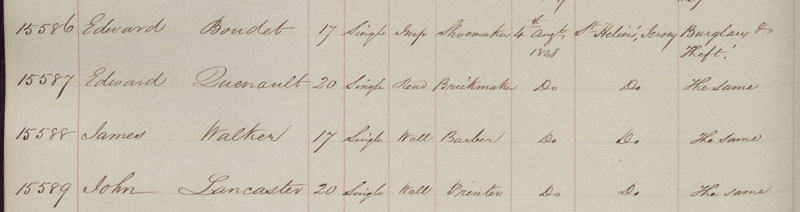 15586 Edward Boudet 17 Single Imp Shoemaker 4th Augt. 1848 St. Helier's, Jersey Burglary & Theft.
15587 Edward Quenault 20 Single Read Brickmaker Do Do The same
15588 James Walker 17 Single Well Barber Do Do The same
15589 John Lancaster 20 Single Well Printer Do Do The same